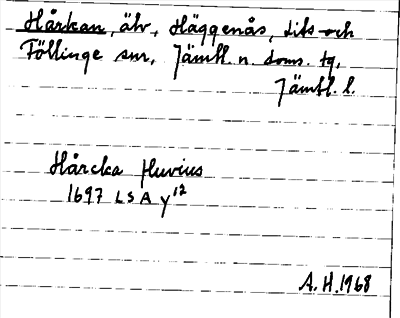 Hårkan, älv, Häggenås, Lits och
Föllinge snr, Jämtl. n. doms. tg,
Jämtl. l.
Hårcka fluvius
1697 LSA Y 12
A.H. 1968